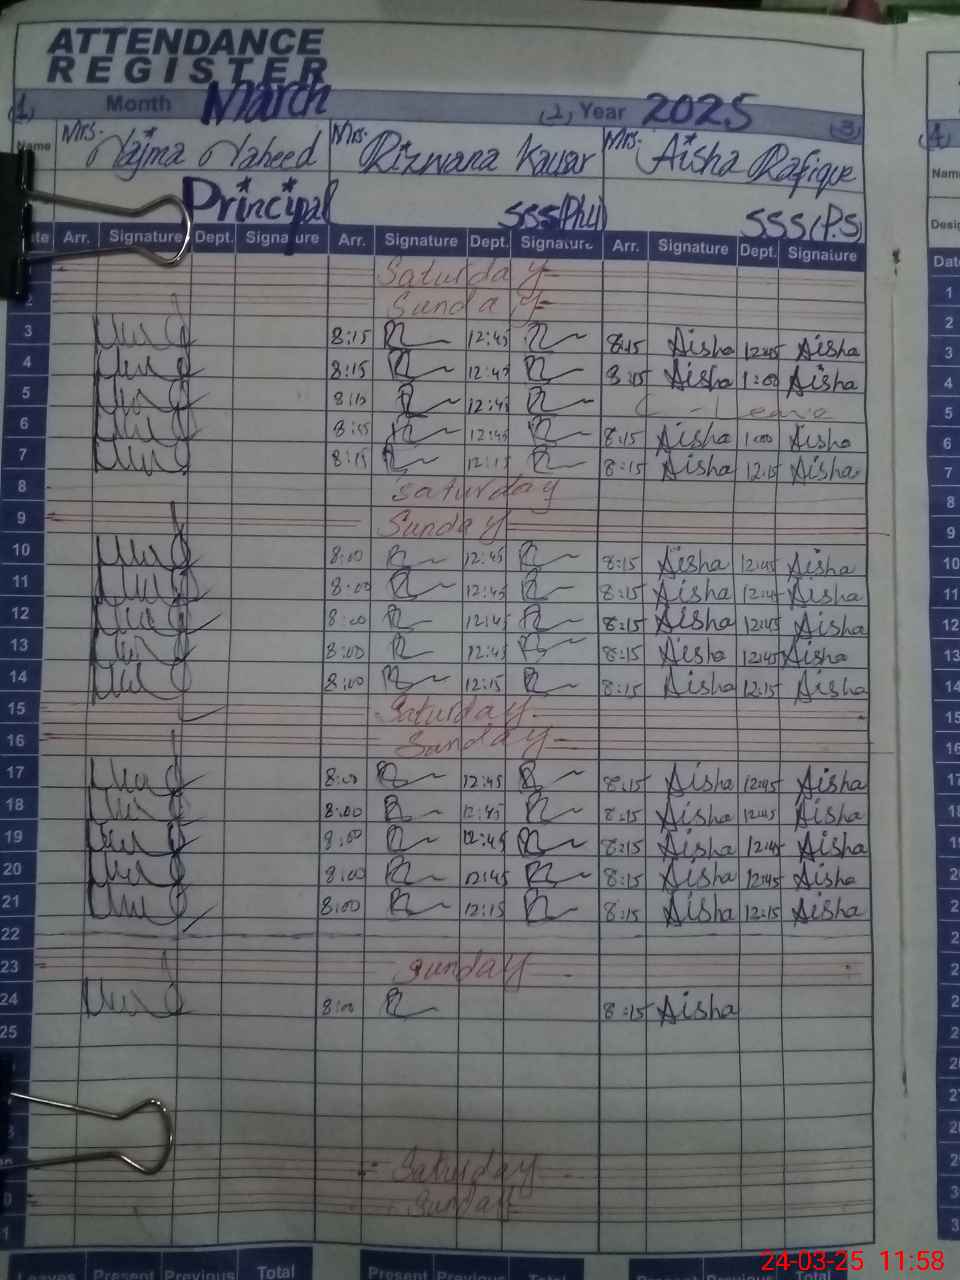 ATTENDANCE
REGISTER
(1) Month March (2) Year 2025 (3)
Name Mrs. Najma Naheed Mrs. Rizwana Kausar Mrs. Aisha Rafique
Principal SSS(Phy) SSS(P.S)
Arr. Signature Dept. Signature Arr. Signature Dept. Signature Arr. Signature Dept. Signature
Saturday
2 Sunday
3 8:15 12:45 8:15 Aisha 12:45 Aisha
4 8:15 12:45 8:15 Aisha 1:00 Aisha
5 8:10 12:45 C - Leave
6 8:15 12:45 8:15 Aisha 1:00 Aisha
7 8:15 12:15 8:15 Aisha 12:15 Aisha
8 Saturday
9 Sunday
10 8:00 12:45 8:15 Aisha 12:45 Aisha
11 8:00 12:45 8:15 Aisha 12:45 Aisha
12 8:00 12:45 8:15 Aisha 12:45 Aisha
13 8:00 12:45 8:15 Aisha 12:45 Aisha
14 8:00 12:15 8:15 Aisha 12:15 Aisha
15 Saturday
16 Sunday
17 8:00 12:45 8:15 Aisha 12:45 Aisha
18 8:00 12:45 8:15 Aisha 12:45 Aisha
19 8:00 12:45 8:15 Aisha 12:45 Aisha
20 8:00 12:45 8:15 Aisha 12:45 Aisha
21 8:00 12:15 8:15 Aisha 12:15 Aisha
22
23 Sunday
24 8:00 8:15 Aisha
25
Saturday
Sunday
Leaves Present Previous Total Present Previous Total Present Previous Total
(4)
Name
Date
1
2
3
4
5
6
7
8
9
10
11
12
13
14
15
16
17
18
24-03-25 11:58